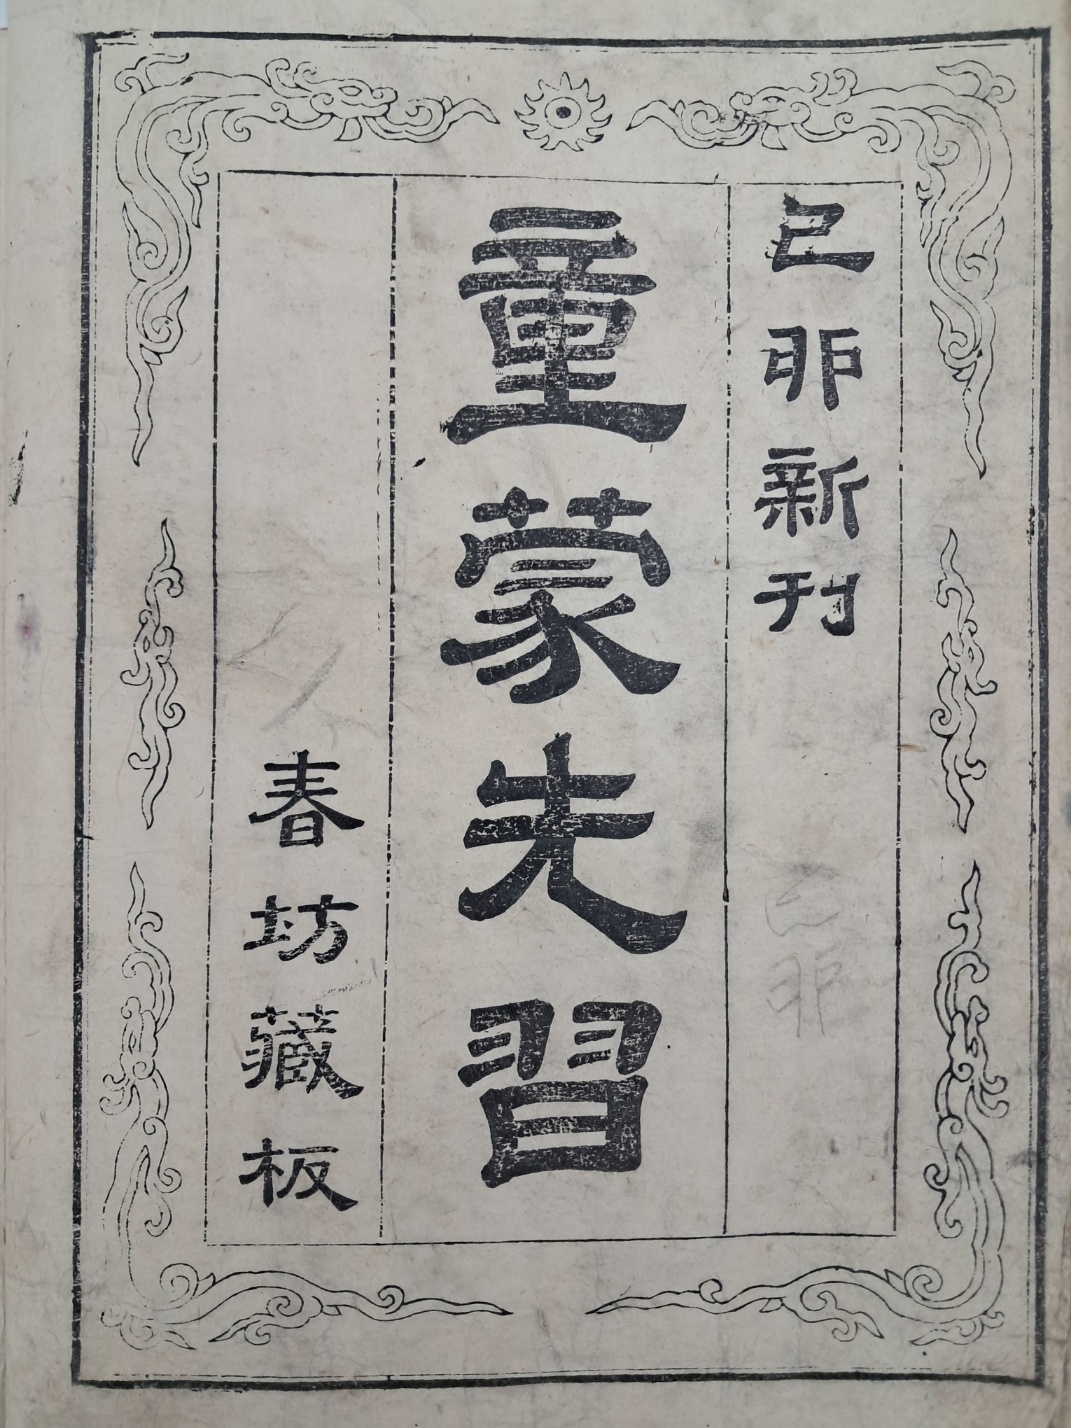 己卯新刊
己卯
童蒙先習
春坊藏板